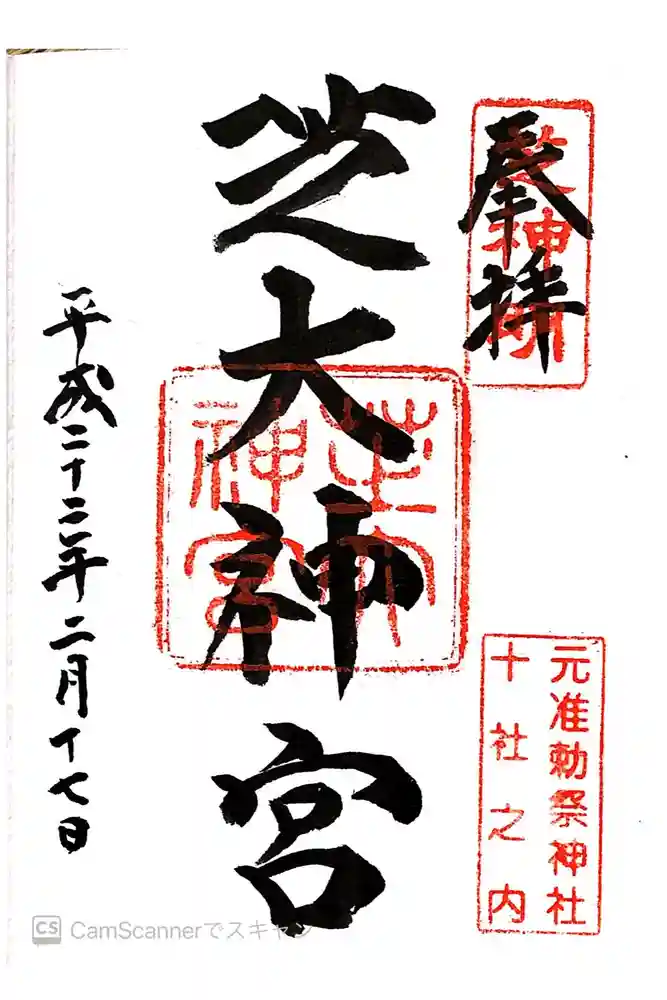 奉拝
芝神明
元准勅祭神社
十社之内
芝大神宮
芝大神宮
平成二十二年二月十七日
CS CamScannerでスキャン